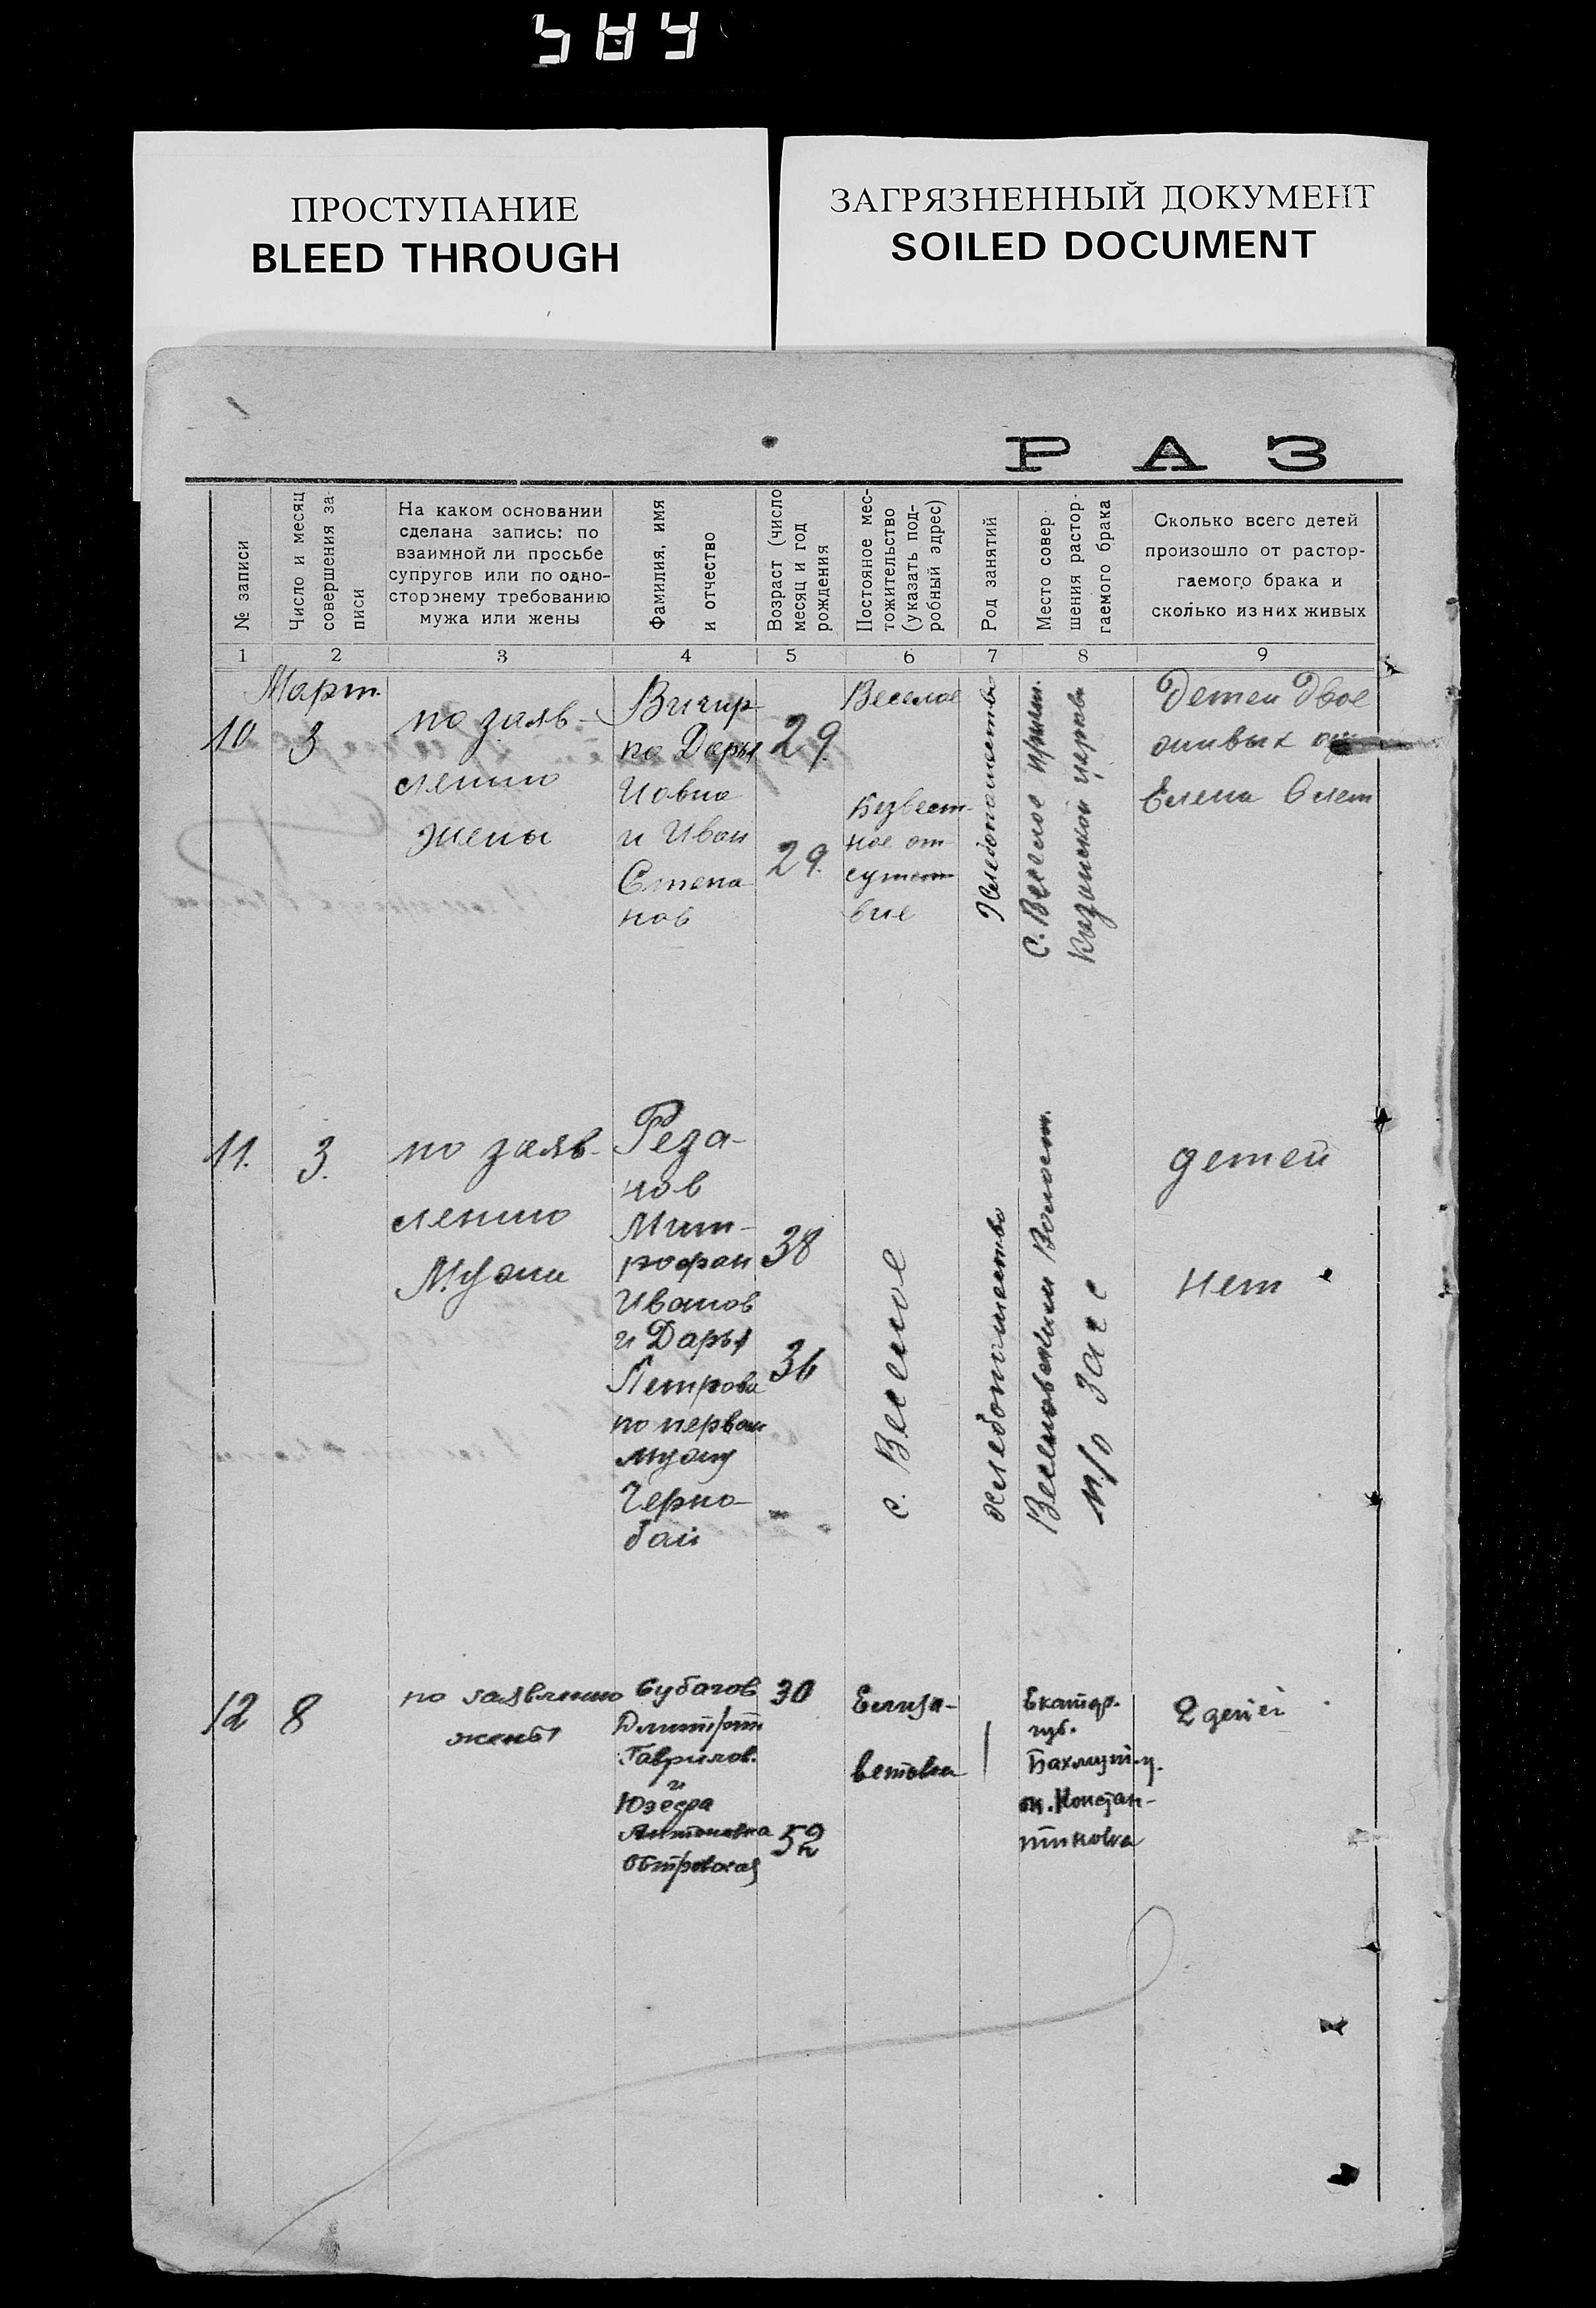 584
ПРОСТУПАНИЕ
BLEED THROUGH
ЗАГРЯЗНЕННЫЙ ДОКУМЕНТ
SOILED DOCUMENT
РАЗ
№ записи
Число и месяц
совершения за-
писи
На каком основании
сделана запись: по
взаимной ли просьбе
супругов или по одно-
стороннему требованию
мужа или жены
Фамилия, имя
и отчество
Возраст (число
месяц и год
рождения
Постояное мес-
тожительство
(указать под-
робный адрес)
Род занятий
Место совер-
шения растор-
гаемого брака
Сколько всего детей
произошло от растор-
гаемого брака и
сколько из них живых
1 2 3 4 5 6 7 8 9
Март.
10
3
по заяв-
лению
жены
Вичир
по Дарья
Иовна
и Иван
Степа
нов
29.
29.
Веселое
Безвест-
ное от
сутст
вие
Хлебопашество
с. Веселое
Казанской церкви
Детей двое
живых
Елена Олет
11.
3.
по заяв-
лению
Мужа
Реза-
нов
Мит-
рофан
Иванов
и Дарья
Петрова
по первом
мужу
Черно-
бай
38
36
с. Веселое
хлебопашество
Веселовским Волост.
п/о Загс
детей
нет
12
8
по заявлению
жены
Субагов
Дмитрит.
Гаврилов.
и
Антоновна
Островская
30
52
Елиза-
ветовка
Екатер.
губ.
Бахмут. у.
Констан-
тиновка
2 детей